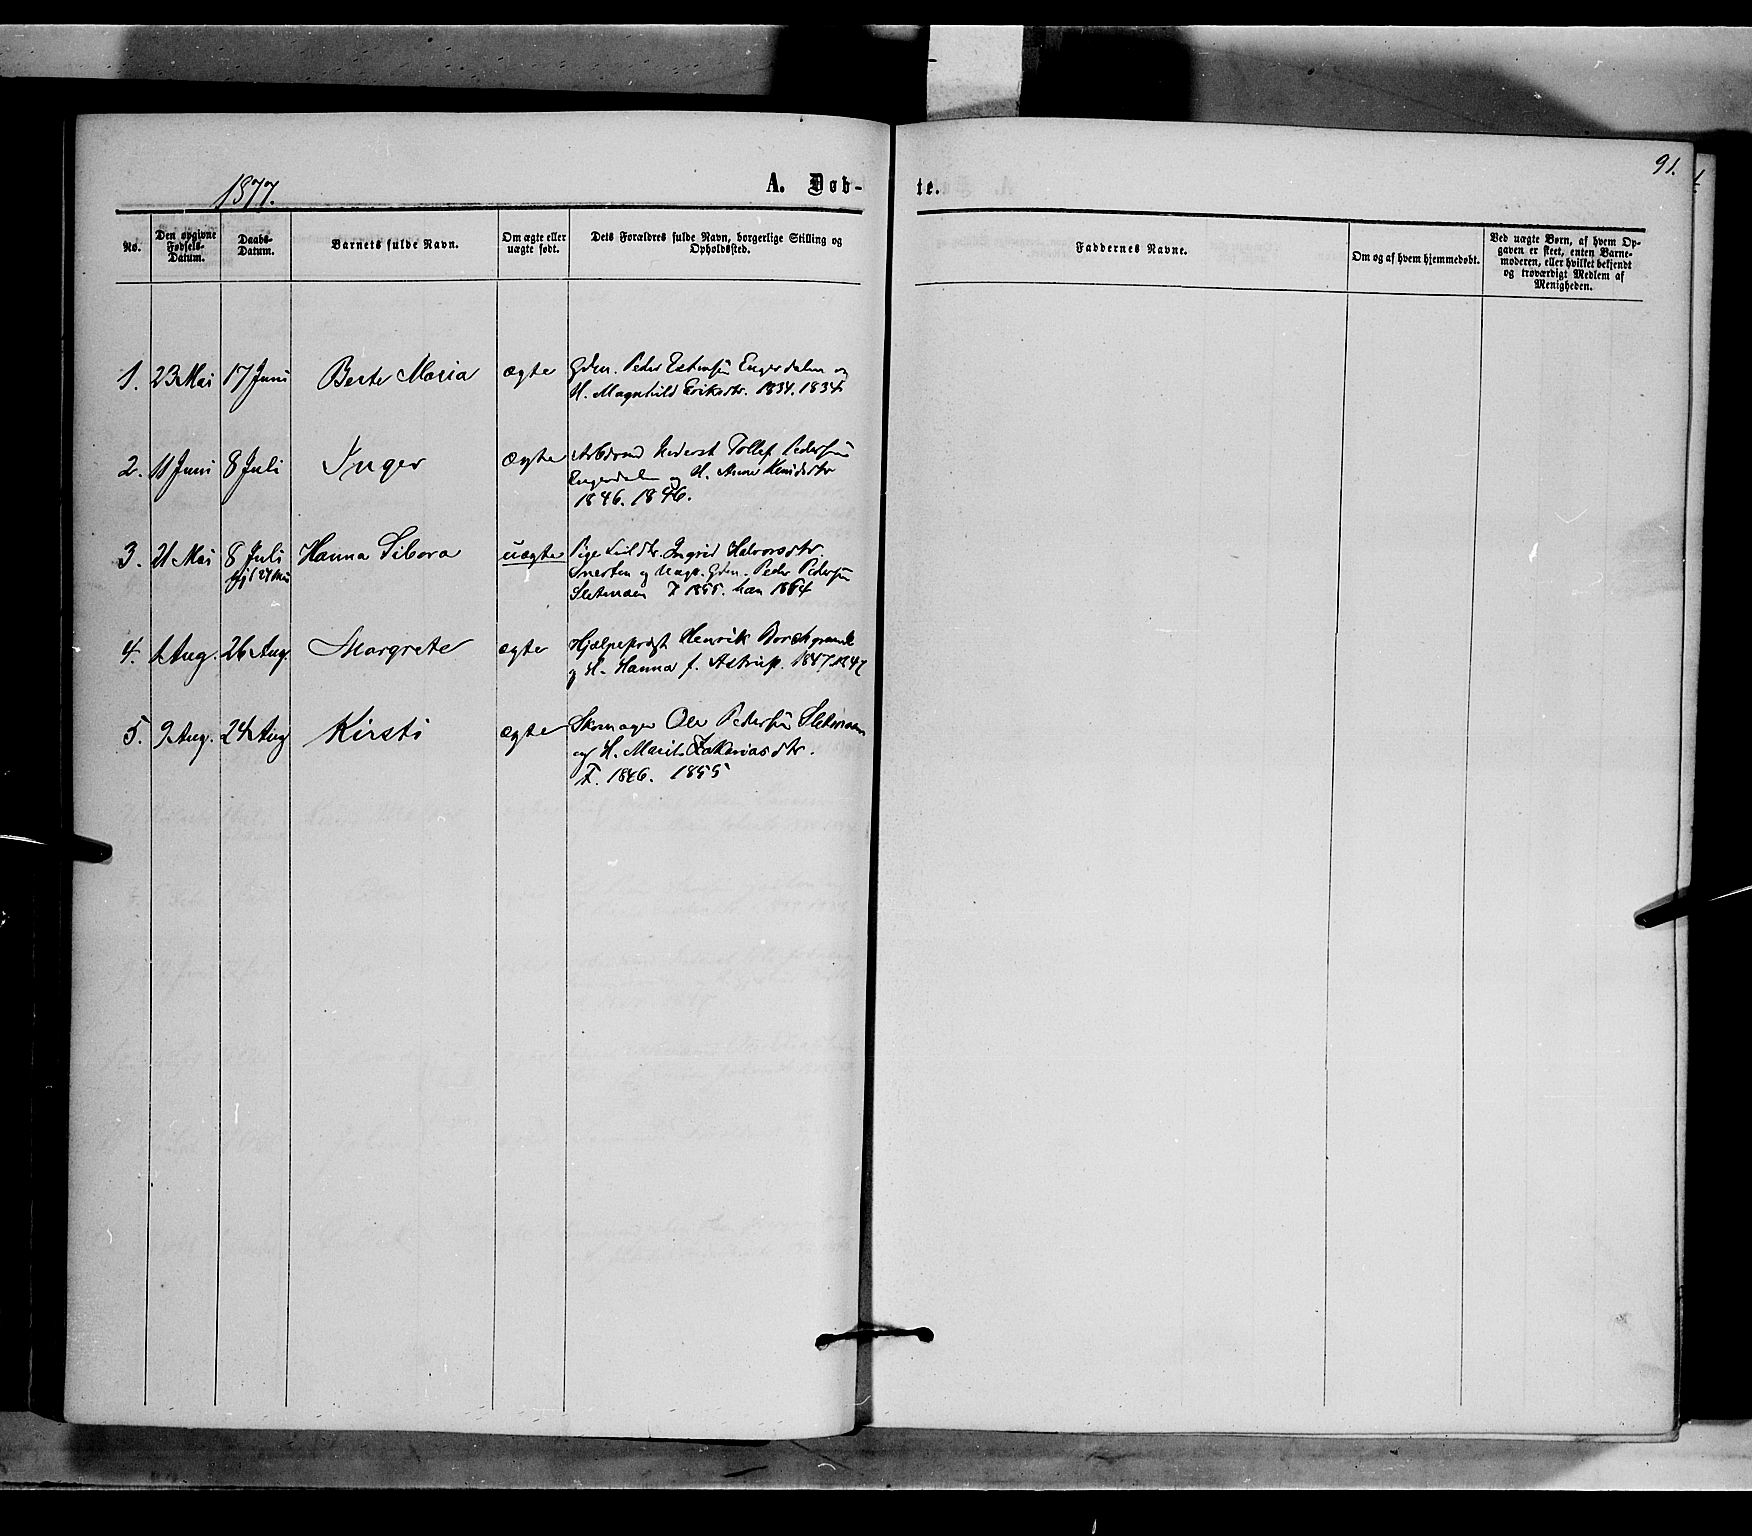 1877.
A. Døb-
te.
91.
No.
Den opgivne
Fødsels-
Datum.
Daabs-
Datum.
Barnets fulde Navn.
Om ægte eller
uægte født.
Dets Forældres fulde Navn, borgerlige Stilling og
Opholdssted.
Faddernes Navne.
Om og af hvem hjemmedøbt.
Ved uægte Børn, af hvem Op-
gaven er skeet, enten Barne-
moderen, eller hvilket bekjendt
og troværdigt Medlem af
Menigheden.
1. 23 Mai 17 Juni Berte Maria ægte Gdm. Peder Estensøn Engerdalen og
H. Magnhild Eriksdtr. 1834. 1834
2. 11 Juni 8 Juli Inger ægte Tollef Pedersøn
Engerdalen og H. Anne
1846. 1846.
3. 21 Mai 8 Juli Hanna Sibora uægte Pige Ingrid Halvorsdtr.
hj d 27 Mai
og Ungk. Gdm. Peder Pedersøn
Sletmoen F 1855. han 1854
4. 1 Aug. 26 Aug. Margrete ægte Hjælpeprest Henrik Borchgrevink
og H. Hanna f. Astrup. 1847. 1847
5. 9 Aug. 24 Aug Kirsti ægte Skomager Ole Pedersøn Sletmoen
og H. Marit Zakariasdtr.
F. 1846. 1855